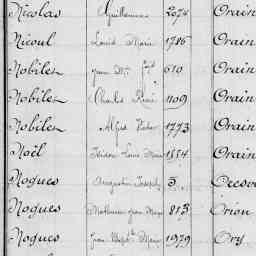 Nicolas Guillaume 2074 Orain
Nicoul Louis Marie 1786 Orain
Nobilet Jean Mie 610 Orain
Nobilet Charles René 1109 Orain
Nobilet Alfred Victor 1773 Orain
Noël Isidore Louis Marie 1854 Orain
Nogues Augustin Joseph 3
Nogues Mathurin Jean Marie 813 Orion
Nogues Jean Bapte Marie 1979 Ory